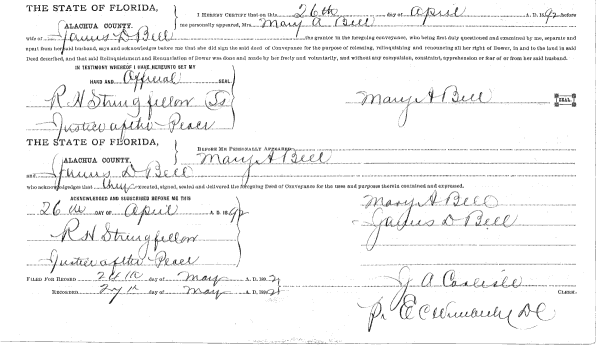 THE STATE OF FLORIDA,
ALACHUA COUNTY.
I HEREBY CERTIFY that on this 26th day of April A. D. 1892 before
me personally appeared, Mrs. Mary A Bell
wife of James D Bell the grantor in the foregoing conveyance, who being first duly questioned and examined by me, separate and
apart from her said husband, says and acknowledges before me that she did sign the said deed of Conveyance for the purpose of releasing, relinquishing and renouncing all her right of Dower, in and to the land in said
Deed described, and that said Relinquishment and Renunciation of Dower was done and made by her freely and voluntarily, and without any compulsion, constraint, apprehension or fear of or from her said husband.
IN TESTIMONY WHEREOF I HAVE HERETO SET MY
HAND AND Official SEAL
R H Stringfellow
Mary A Bell SEAL
Justice of the Peace
THE STATE OF FLORIDA,
ALACHUA COUNTY.
BEFORE ME PERSONALLY APPEARED Mary A Bell
and James D Bell
who acknowledges that they executed, signed, sealed and delivered the foregoing Deed of Conveyance for the uses and purposes therein contained and expressed.
ACKNOWLEDGED AND SUBSCRIBED BEFORE ME THIS
26th DAY OF April A. D. 1892
Mary A Bell
James D Bell
R H Stringfellow
Justice of the Peace
FILED FOR RECORD 24th day of May A. D. 1892
J A Carlisle CLERK.
RECORDED 27th day of May A. D. 1892
Pr E C DC